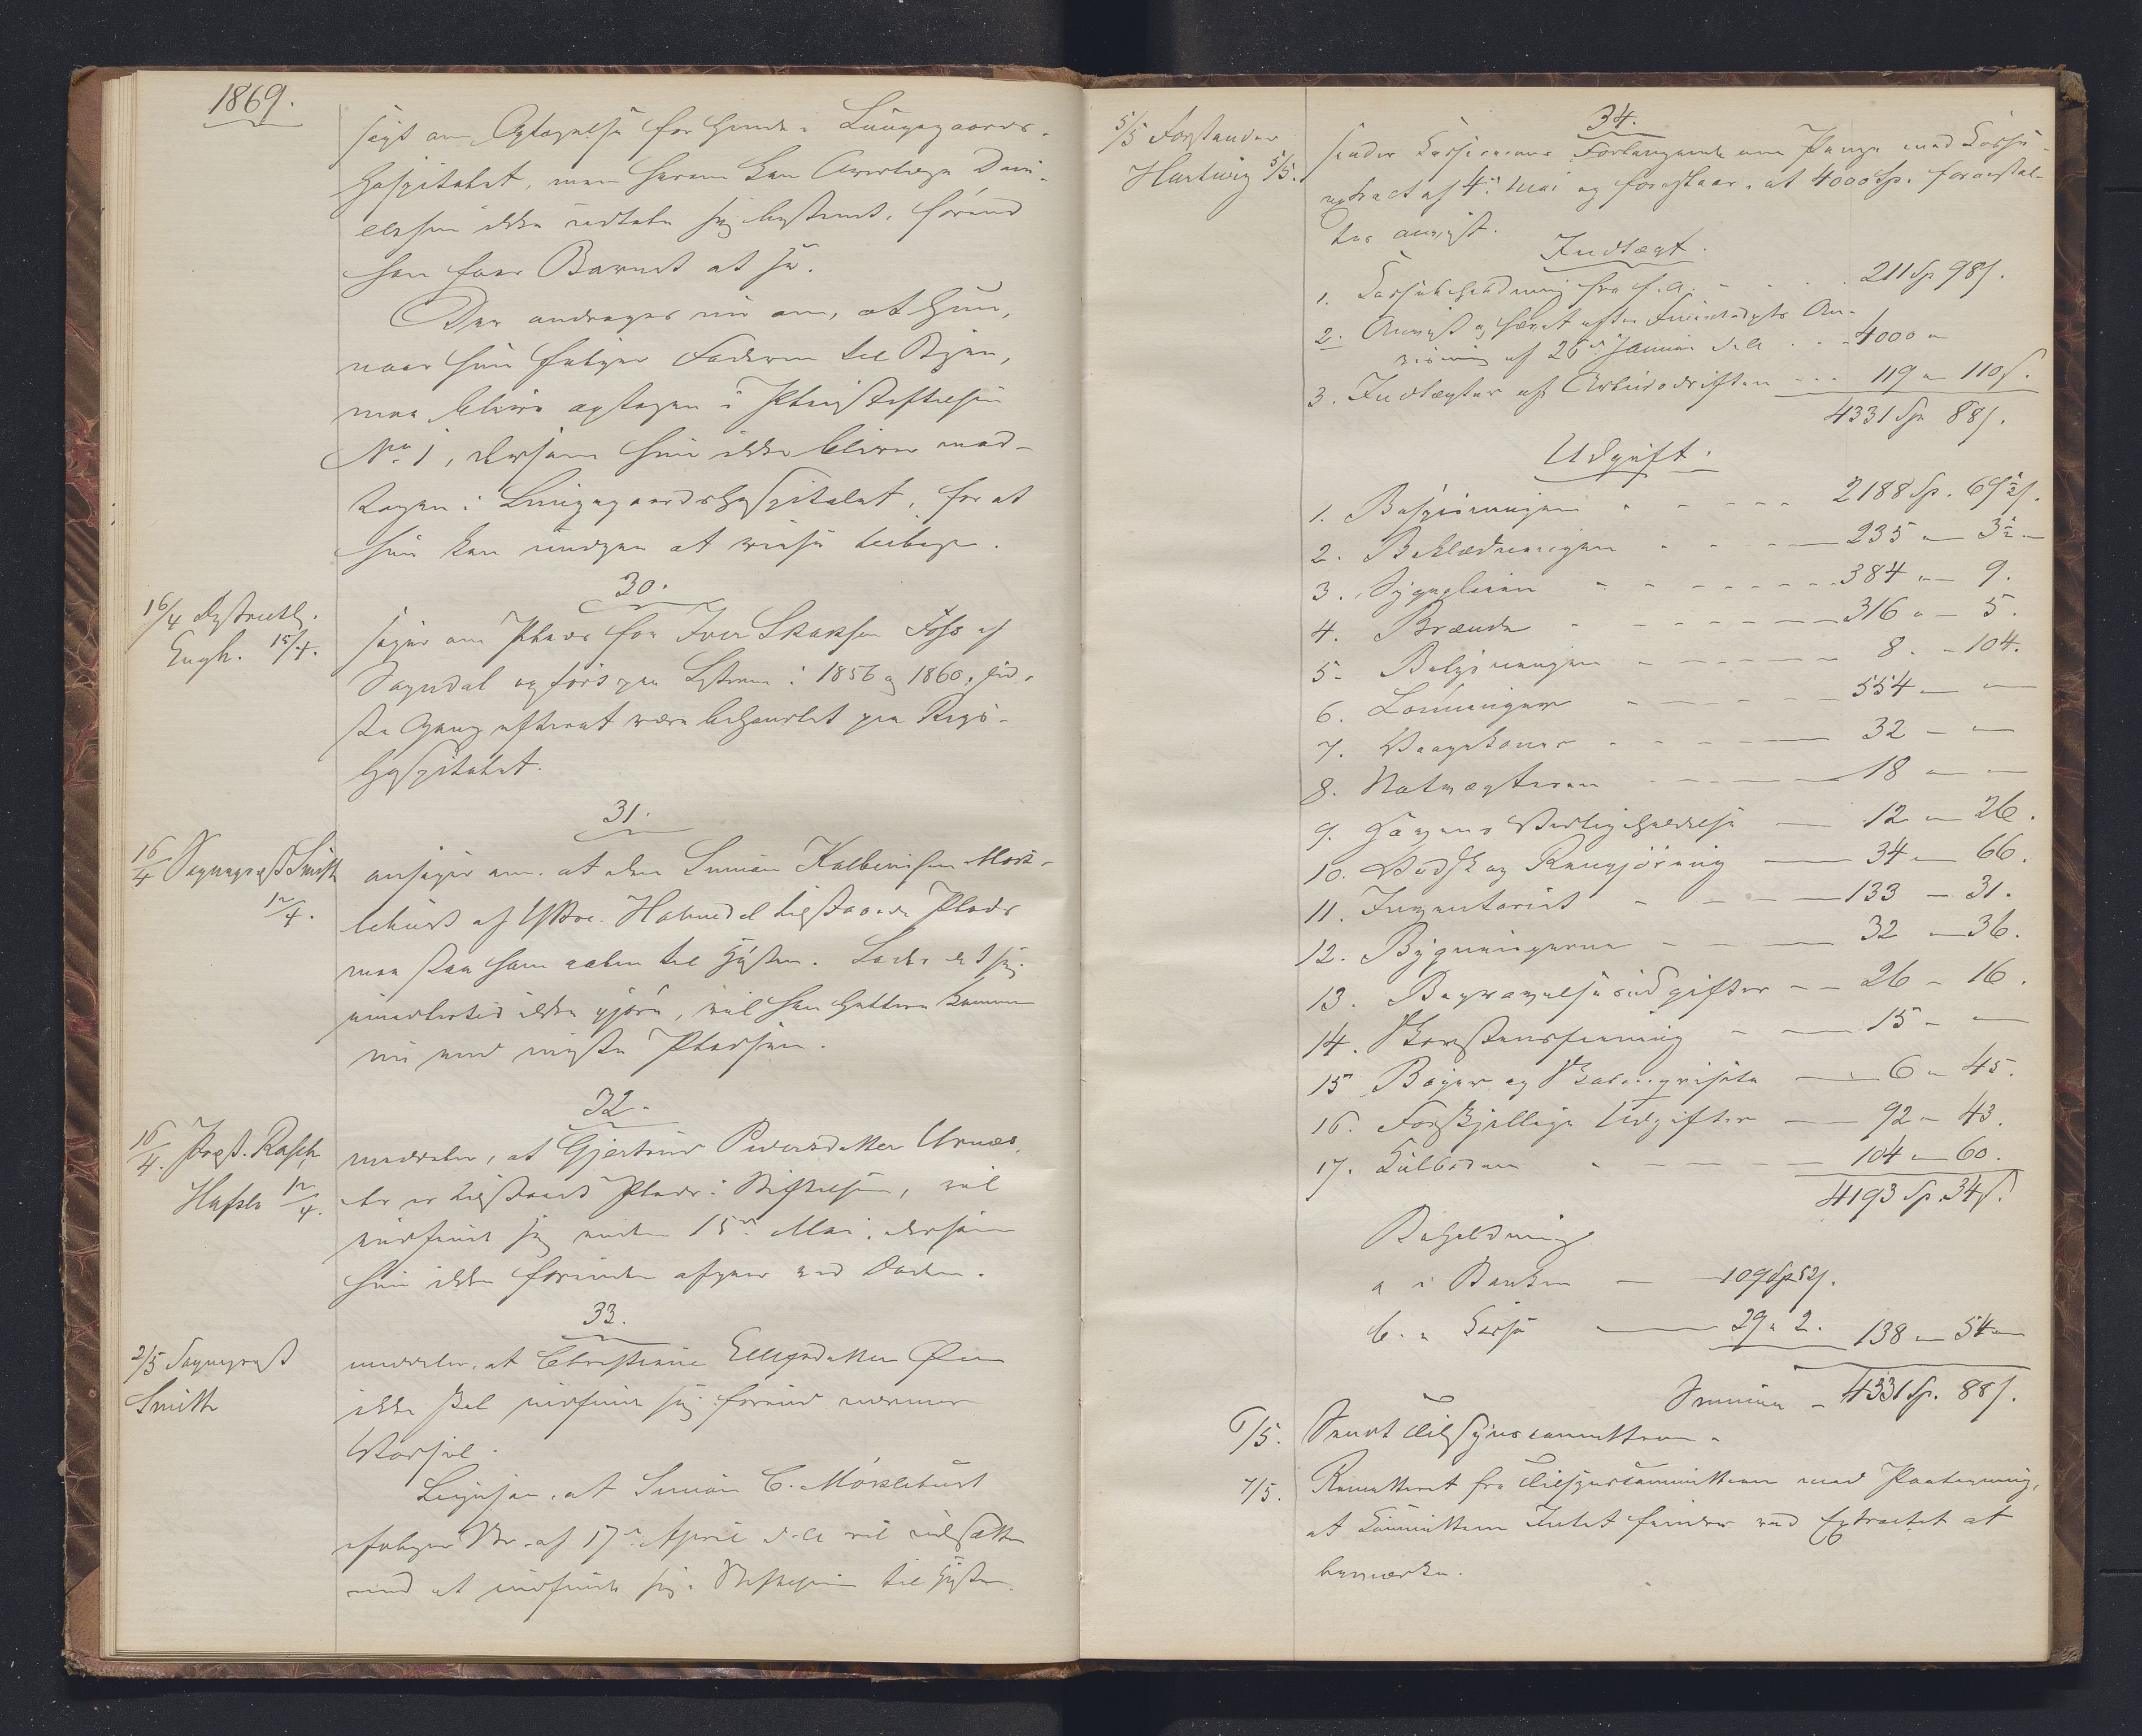 1869.
søgt om Optagelse for hende i Lungegaards-
hospitalet, men herom kan Overlæge Dani-
elssen ikke udtale sig bestemt, førend
han faar Barnet at se.
Der andrages nu om, at hun,
naar hun følger Faderen til Byen,
maa blive optagen i Pleiestiftelsen
No 1, dersom hun ikke bliver mod-
tagen i Lungegaardshospitalet, for at
hun kan undgaa at reise tilbage.
30.
16/4 Distriktsl.
Engh. 15/4.
søger om Plads for Iver Skaksen Foss af
Sogndal
og 1860, sid-
ste Gang efterat være behandlet paa Rigs-
hospitalet.
31.
16/4 Sogneprest Smith
12/4.
ansøger om, at den Simon Kolbeinsen Mørk-
lebust af Ytre Holmedal tilstaaede Plads
maa staa ham aaben til Høsten. Lader det sig
imidlertid ikke gjøre, vil han hellere komme
nu end miste Pladsen.
32.
16/4. Prest Rasch,
Hafslo 12/4.
melder, at Gjertrud Pedersdatter Urnæs,
der er tilstaaet Plads i Stiftelsen, vil
indfinde sig inden 15de Mai, dersom
hun ikke forinden afgaar ved Døden.
33.
2/5 Sogneprest
Smith
melder, at Christine Ellingsdatter Øen
ikke skal indfinde sig førend nærmere
Varsel.
Ligesaa, at Simon C. Mørklebust
ifølge Br. af 17de April d.A. vil udsætte
med at indfinde sig i Stiftelsen til Høsten.
5/5 Forstander
Hartwig 5/5.
34.
sender Kassererens Forlangende om Penge med Kasse-
extract af 4de Mai og foreslaar, at 4000 Sp. foranstal-
tes anvist.
Indtægt.
1. Kassebeholdning fra f.A. - - - 211 Sp 98 s.
2. Anvist og hævet efter Amtets An-
visning af 26de Januar d.A. - - 4000 "
3. Indtægter af Arbeidsdriften - - - 119 " 110 s.
4331 Sp 88 s.
Udgift.
1. Bespisningen - - - - 2188 Sp. 69½ s.
2. Beklædningen - - - 235 — 3½ —
3. Sygepleien - - - - 384 — 9.
4. Brænde - - - - 316 " — 5.
5. Belysningen - - - - 8. - 104.
6. Lønninger - - - - 554 — —
7. Vaagekoner - - - - 32 — —
8. Natvægteren - - - - 18 — —
9. Havens Vedligeholdelse — 12 — 26.
10. Vadsk og Rengjøring — 34 — 66.
11. Inventariet - - - - 133 — 31.
12. Bygningerne - - - 32 — 36.
13. Begravelsesudgifter - - 26 - 16.
14. Skorstensfeining - - 15 - —
15 Bøger og Skrivepapir — 6 " 45.
16. Forskjellige Udgifter — 92 " 43.
17. - - - 104 — 60.
4193 Sp. 34 s.
Beholdning
a i Banken — 109 Sp 52 s.
b. " Kasse — 29 " 2. 138 — 54 —
Summa - 4331 Sp. 88 s.
6/5. Sendt Tilsynscommitteen.
7/5. Remitteret fra Tilsynscommitteen med Paategning,
at Committeen Intet finder ved Extractet at
bemærke.